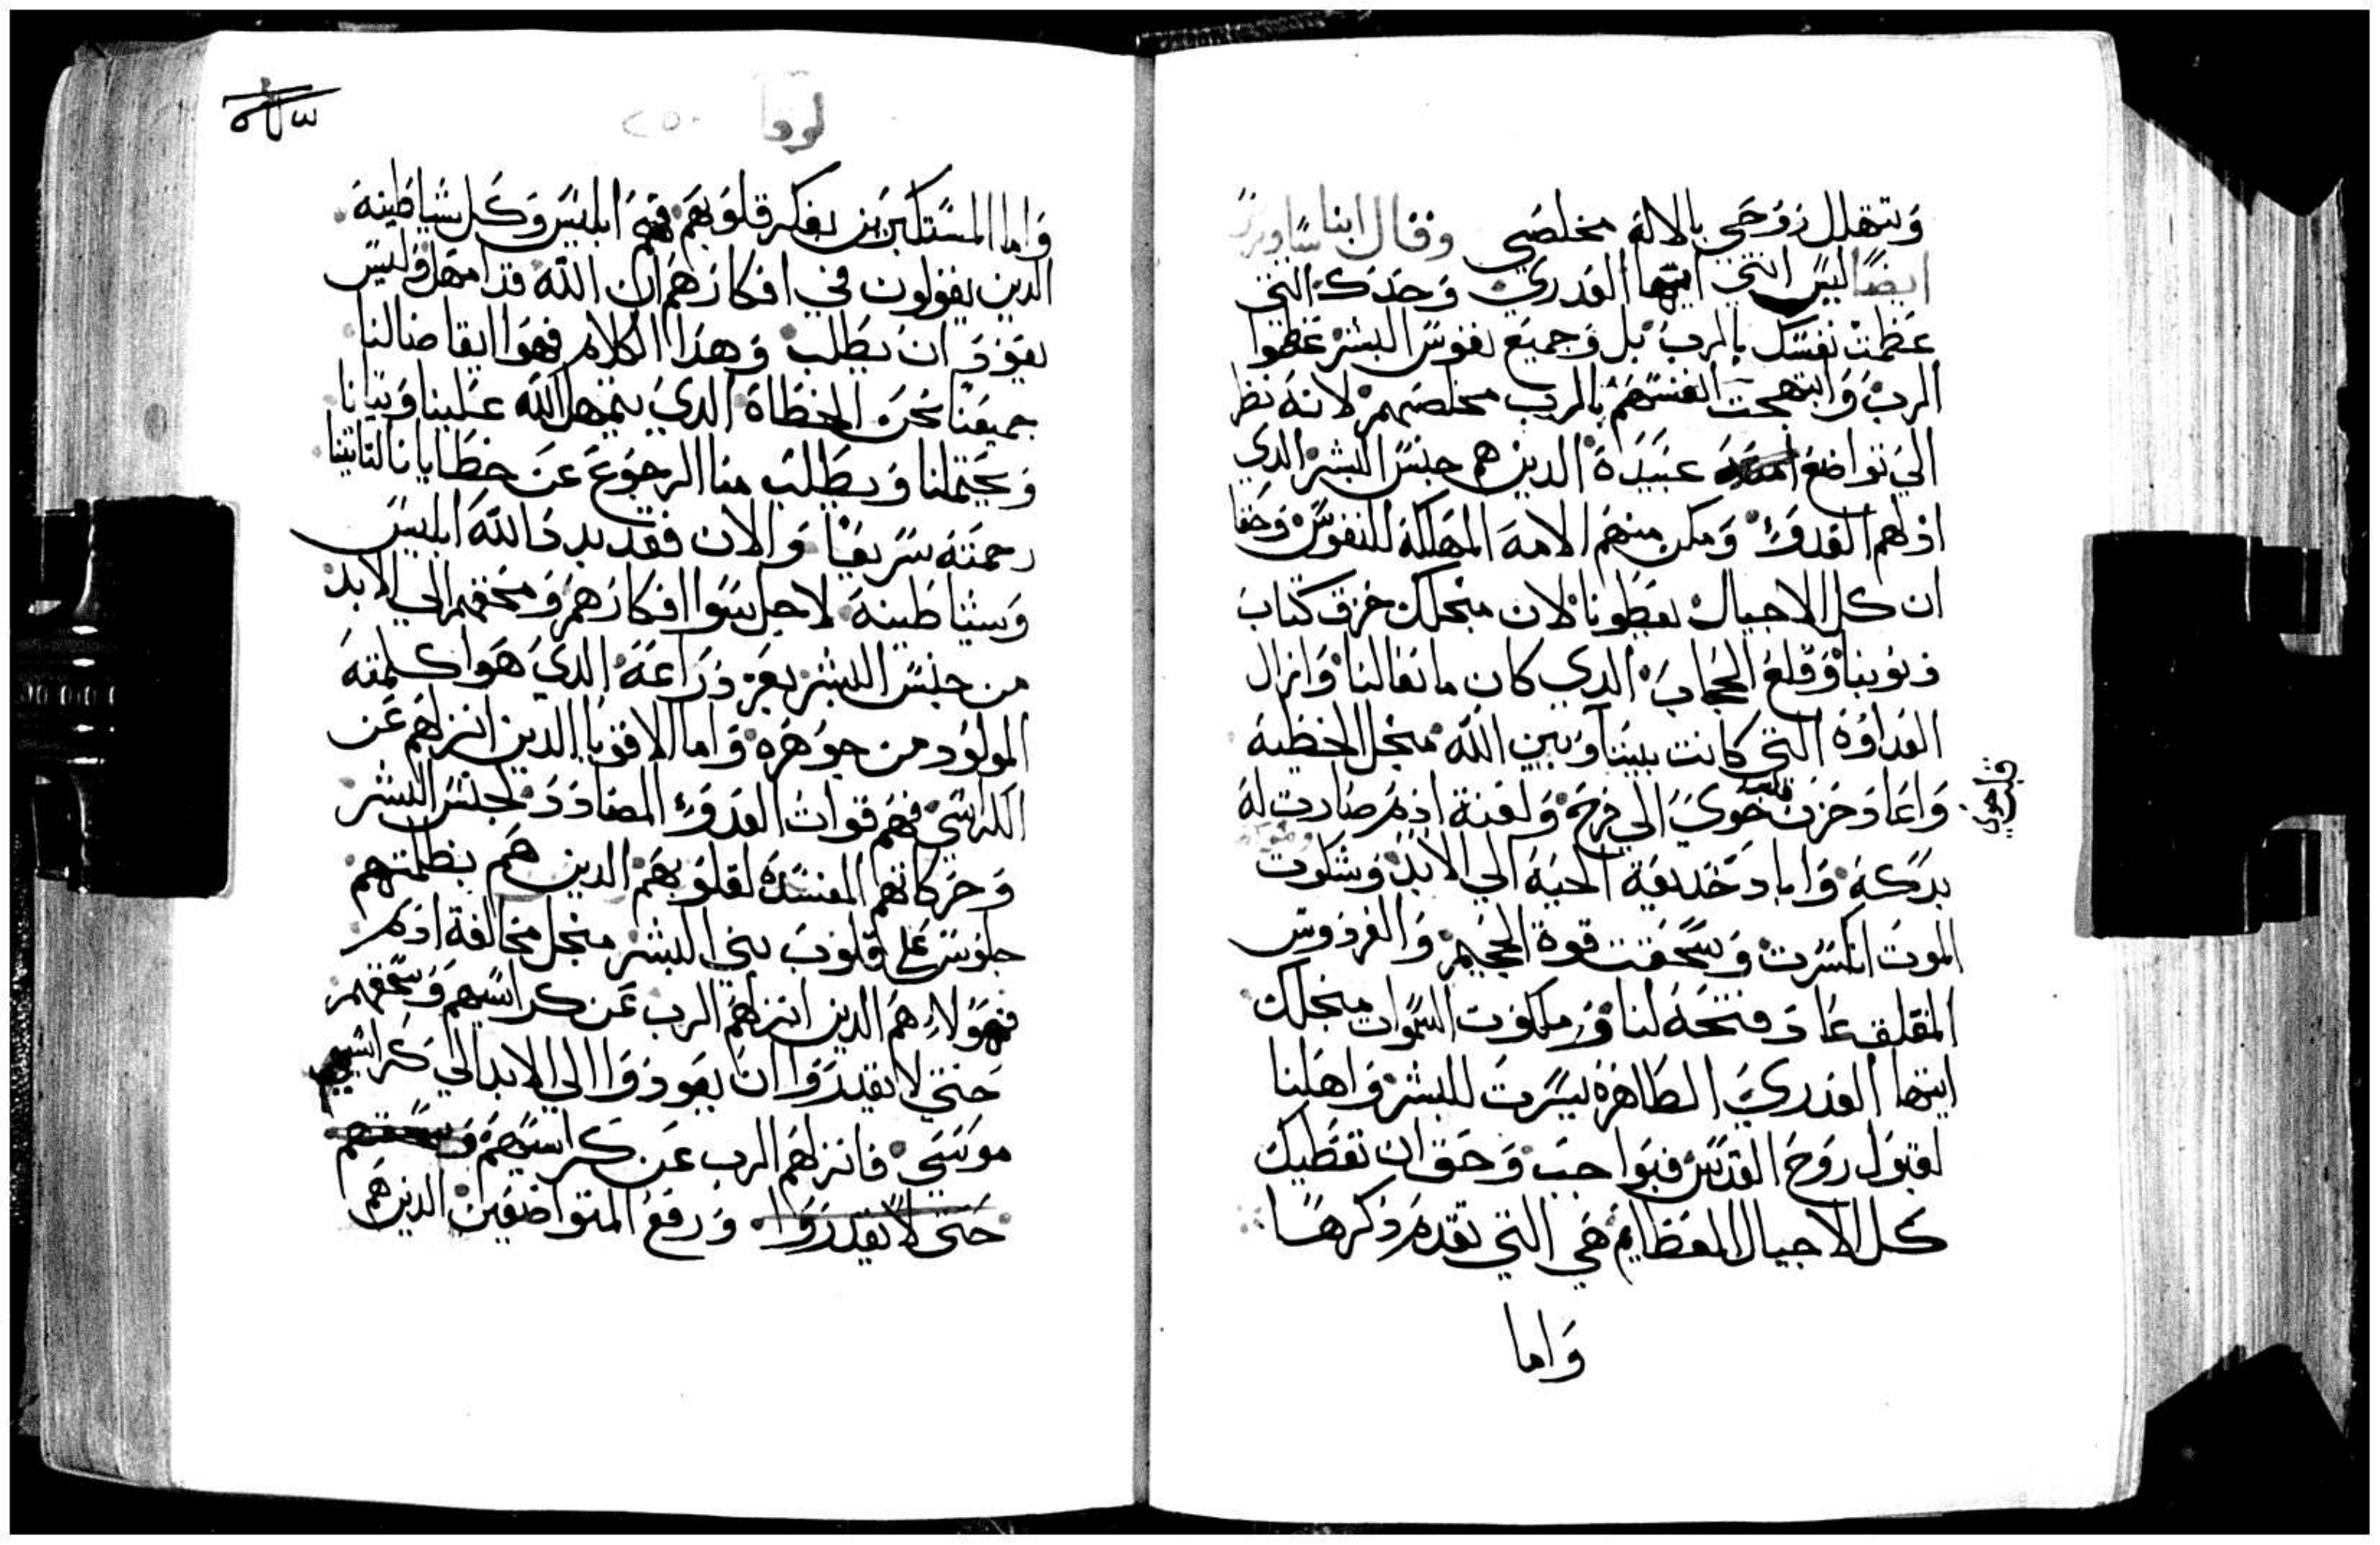 وتتهلل روحي بالاله مخلصي وقال ابنا ساويرس
ايضا ليس انتي ايتها العدري وحدك التي
عظمت نفسك بالرب بل وجميع نفوس البشر عظموا
الرب وابتهجت انفسهم بالرب مخلصهم لانه نظر
الي تواضع عبيدة الدين هم جنس البشر الدي
ادلهم العدو ومكن منهم الامه المهلكة للنفوس وحقا
ان كل الاجيال يعطونا لان منجلك خرق كتاب
دنوبنا وقلع الحجاب الدي كان مانعا لنا وازال
العداوة التي كانت بيننا وبين الله منجل الخطية
واعاد حزن حوي الي فرح ولعنة ادم صارت له
قلب حوي
بركة واما دخديعة الحية الي الابد وشكوت
الموت انكسرت وسحقت قوة الجحيم والفردوس
المقلف عاد فتحه لنا وملكوت السموات منجلك
ايتها العدري الطاهرة يسرت للبشر واهلنا
لقبول روح القدس فبواجب وحق ان تعطيك
كل الاجيال المعظايم هي التي تقدم دكرها
واما
لوقا
٢٥٠
واما المستكبرين بفكر قلوبهم فهم ابليس وكل شياطينه
الدين يقولون في افكارهم ان الله قد امهل وليس
يعود ان يطلب وهدا الكلام فهو ايقاضا لنا
جميعنا نحن الخطاة الدي يتمهل الله علينا ويتانا
ويحتملنا ويطلب منا الرجوع عن خطايانا لتاتينا
رحمته سريعا والان فقد بدد الله ابليس
وشياطينه لاجل سوا افكارهم ومحقهم الي الابد
من جنس البشر بعز دراعه الدي هوا كلمته
المولود من جوهره واما الاقويا الدين انزلهم عن
الكراسي فهم قوات العدو المضادد لجنس البشر
وحركاتهم المفسدة لقلوبهم الدين هم بظلمتهم
جلوس علي قلوب بني البشر منجل مخالفة ادم
فهولاء هم الدين انزلهم الرب عن كراسيهم وسحقهم
حتي لا يقدروا ان يعودوا الي الابد الي كراسيهم
موسي فانزلهم الرب عن كراسيهم وسحقهم
حتي لا يقدروا ورفع المتواضعين الدين هم